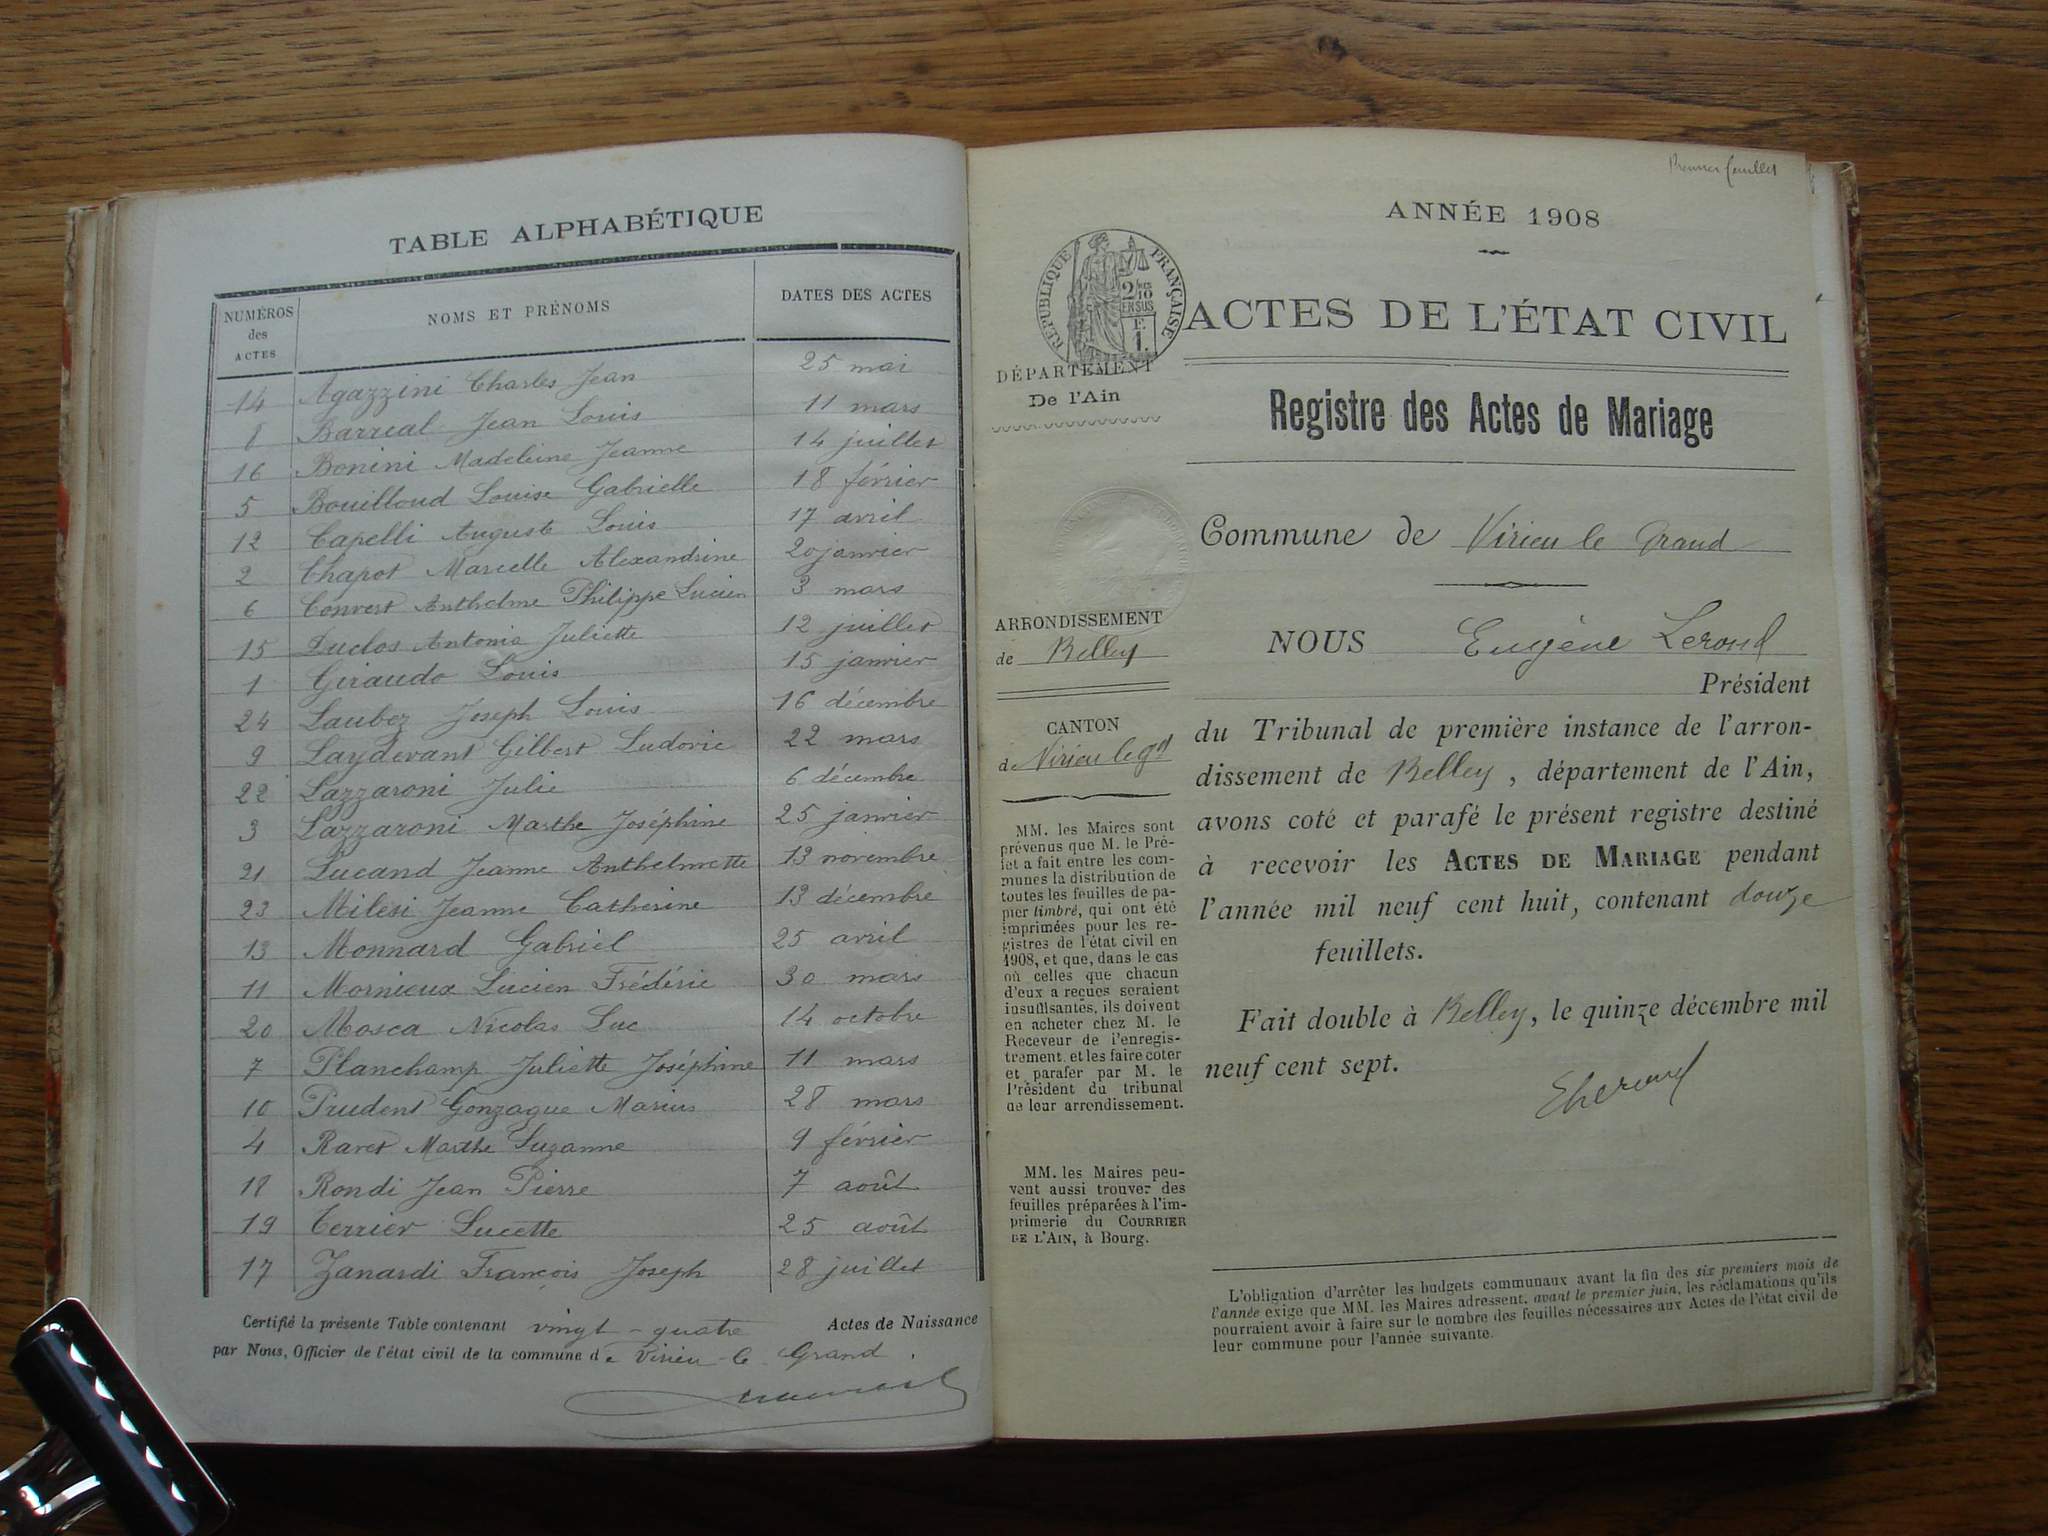 TABLE ALPHABÉTIQUE
NUMÉROS des ACTES NOMS ET PRÉNOMS DATES DES ACTES
14 Agazzini Charles Jean 25 mai
8 Barreal Jean Louis 11 mars
16 Bonini Madeleine Jeanne 14 juillet
5 Bouilloud Louise Gabrielle 18 février
12 Capelli Auguste Louis 17 avril
2 Chapot Marcelle Alexandrine 20 janvier
6 Convert Anthelme Philippe Lucien 3 mars
15 Duclos Antonia Juliette 12 juillet
1 Giraudo Louis 15 janvier
24 Laubez Joseph Louis 16 décembre
9 Laydevant Gilbert Ludovic 22 mars
22 Lazzaroni Julie 6 décembre
3 Lazzaroni Marthe Joséphine 25 janvier
21 Lucand Jeanne Anthelmette 13 novembre
23 Milesi Jeanne Catherine 13 décembre
13 Monnard Gabriel 25 avril
11 Mornieux Lucien Frédéric 30 mars
20 Mosca Nicolas Luc 14 octobre
7 Planchamp Juliette Joséphine 11 mars
10 Prudent Gonzague Marius 28 mars
4 Ravet Marthe Suzanne 9 février
18 Rondi Jean Pierre 7 août
19 Terrier Lucette 25 août
17 Zanardi François Joseph 28 juillet
Certifié la présente Table contenant vingt-quatre Actes de Naissance
par Nous, Officier de l'état civil de la commune de Virieu-le-Grand.
Premier feuillet
ANNÉE 1908
RÉPUBLIQUE FRANÇAISE
2/10 EN SUS
F.
1.
ACTES DE L'ÉTAT CIVIL
DÉPARTEMENT
De l'Ain
Registre des Actes de Mariage
Commune de Virieu le Grand
ARRONDISSEMENT
de Belley
CANTON
de Virieu le Gd
MM. les Maires sont
prévenus que M. le Pré-
fet a fait entre les com-
munes la distribution de
toutes les feuilles de pa-
pier timbré, qui ont été
imprimées pour les re-
gistres de l'état civil en
1908, et que, dans le cas
où celles que chacun
d'eux a reçues seraient
insuffisantes, ils doivent
en acheter chez M. le
Receveur de l'enregis-
trement et les faire coter
et parafer par M. le
Président du tribunal
de leur arrondissement.
MM. les Maires peu-
vent aussi trouver des
feuilles préparées à l'im-
primerie du COURRIER
DE L'AIN, à Bourg.
NOUS Eugène Lerond
Président
du Tribunal de première instance de l'arron-
dissement de Belley, département de l'Ain,
avons coté et parafé le présent registre destiné
à recevoir les ACTES DE MARIAGE pendant
l'année mil neuf cent huit, contenant douze
feuillets.
Fait double à Belley, le quinze décembre mil
neuf cent sept.
L'obligation d'arrêter les budgets communaux avant la fin des six premiers mois de
l'année exige que MM. les Maires adressent, avant le premier juin, les réclamations qu'ils
pourraient avoir à faire sur le nombre des feuilles nécessaires aux Actes de l'état civil de
leur commune pour l'année suivante.